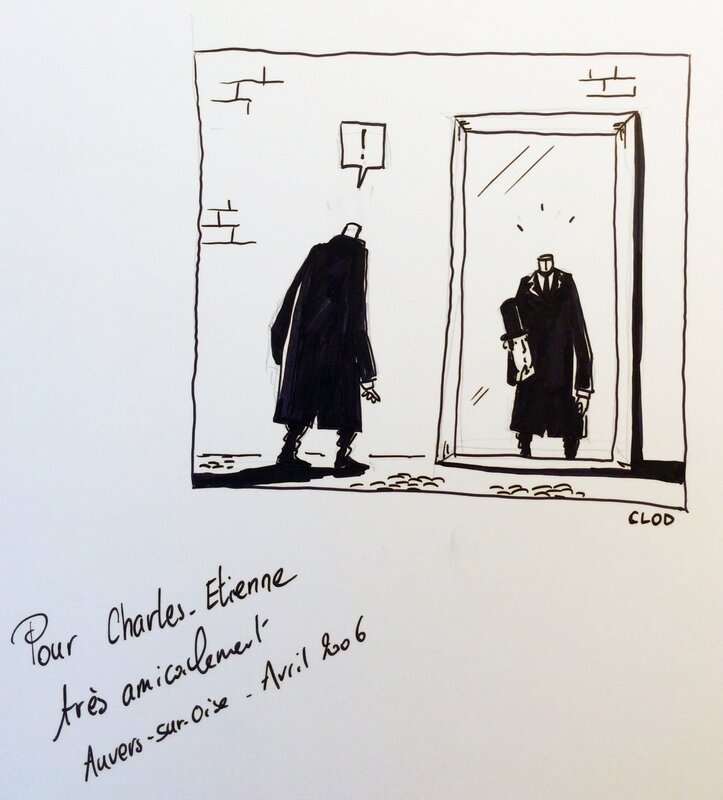 !
CLOD
Pour Charles-Etienne
très amicalement
Auvers-sur-Oise - Avril 2006